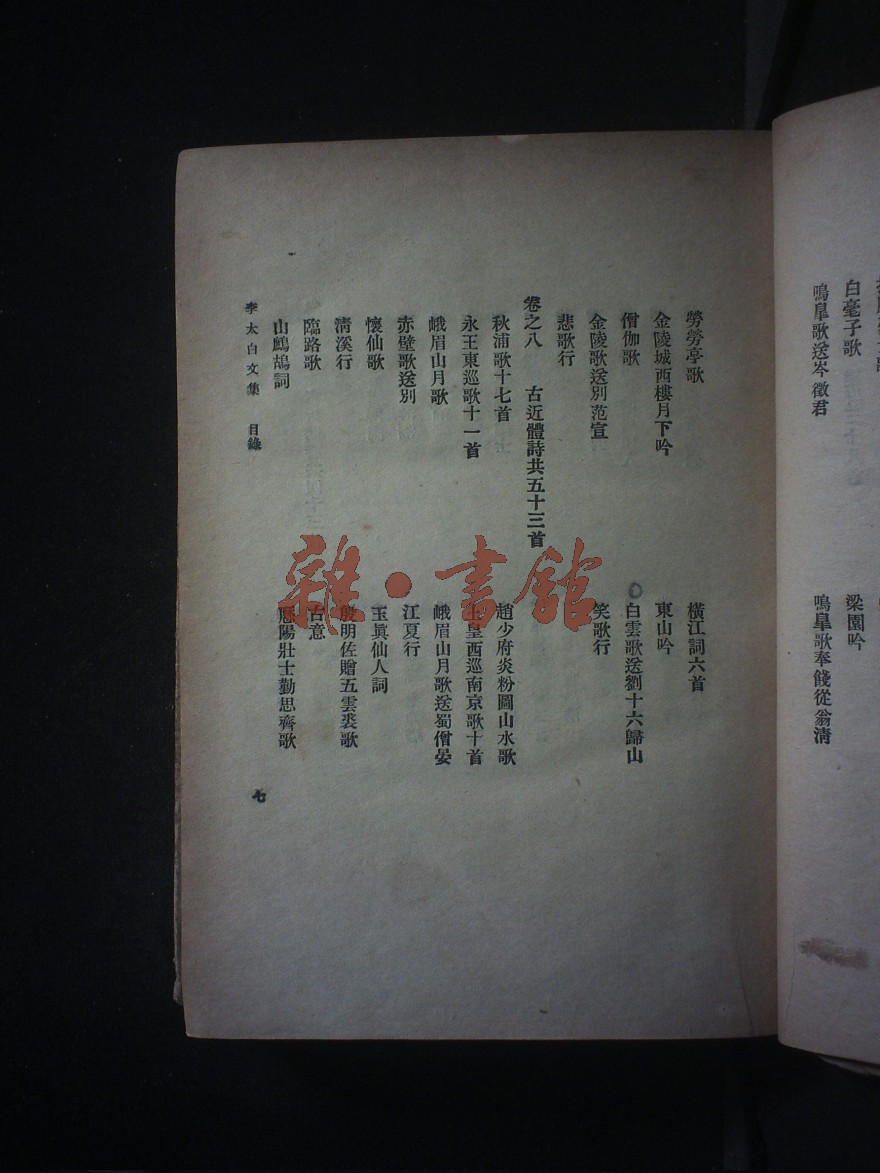 白毫子歌
梁園吟
鳴皐歌送岑徵君
鳴皐歌奉餞從翁淸
勞勞亭歌
橫江詞六首
金陵城西樓月下吟
東山吟
僧伽歌
白雲歌送劉十六歸山
金陵歌送別范宣
笑歌行
悲歌行
卷之八 古近體詩共五十三首
秋浦歌十七首
趙少府炎粉圖山水歌
永王東巡歌十一首
上皇西巡南京歌十首
峨眉山月歌
峨眉山月歌送蜀僧晏
赤壁歌送別
江夏行
懷仙歌
玉眞仙人詞
淸溪行
殷明佐贈五雲裘歌
臨路歌
古意
山鷓鴣詞
歷陽壯士勤思齊歌
李太白文集 目錄
七
雜·書館